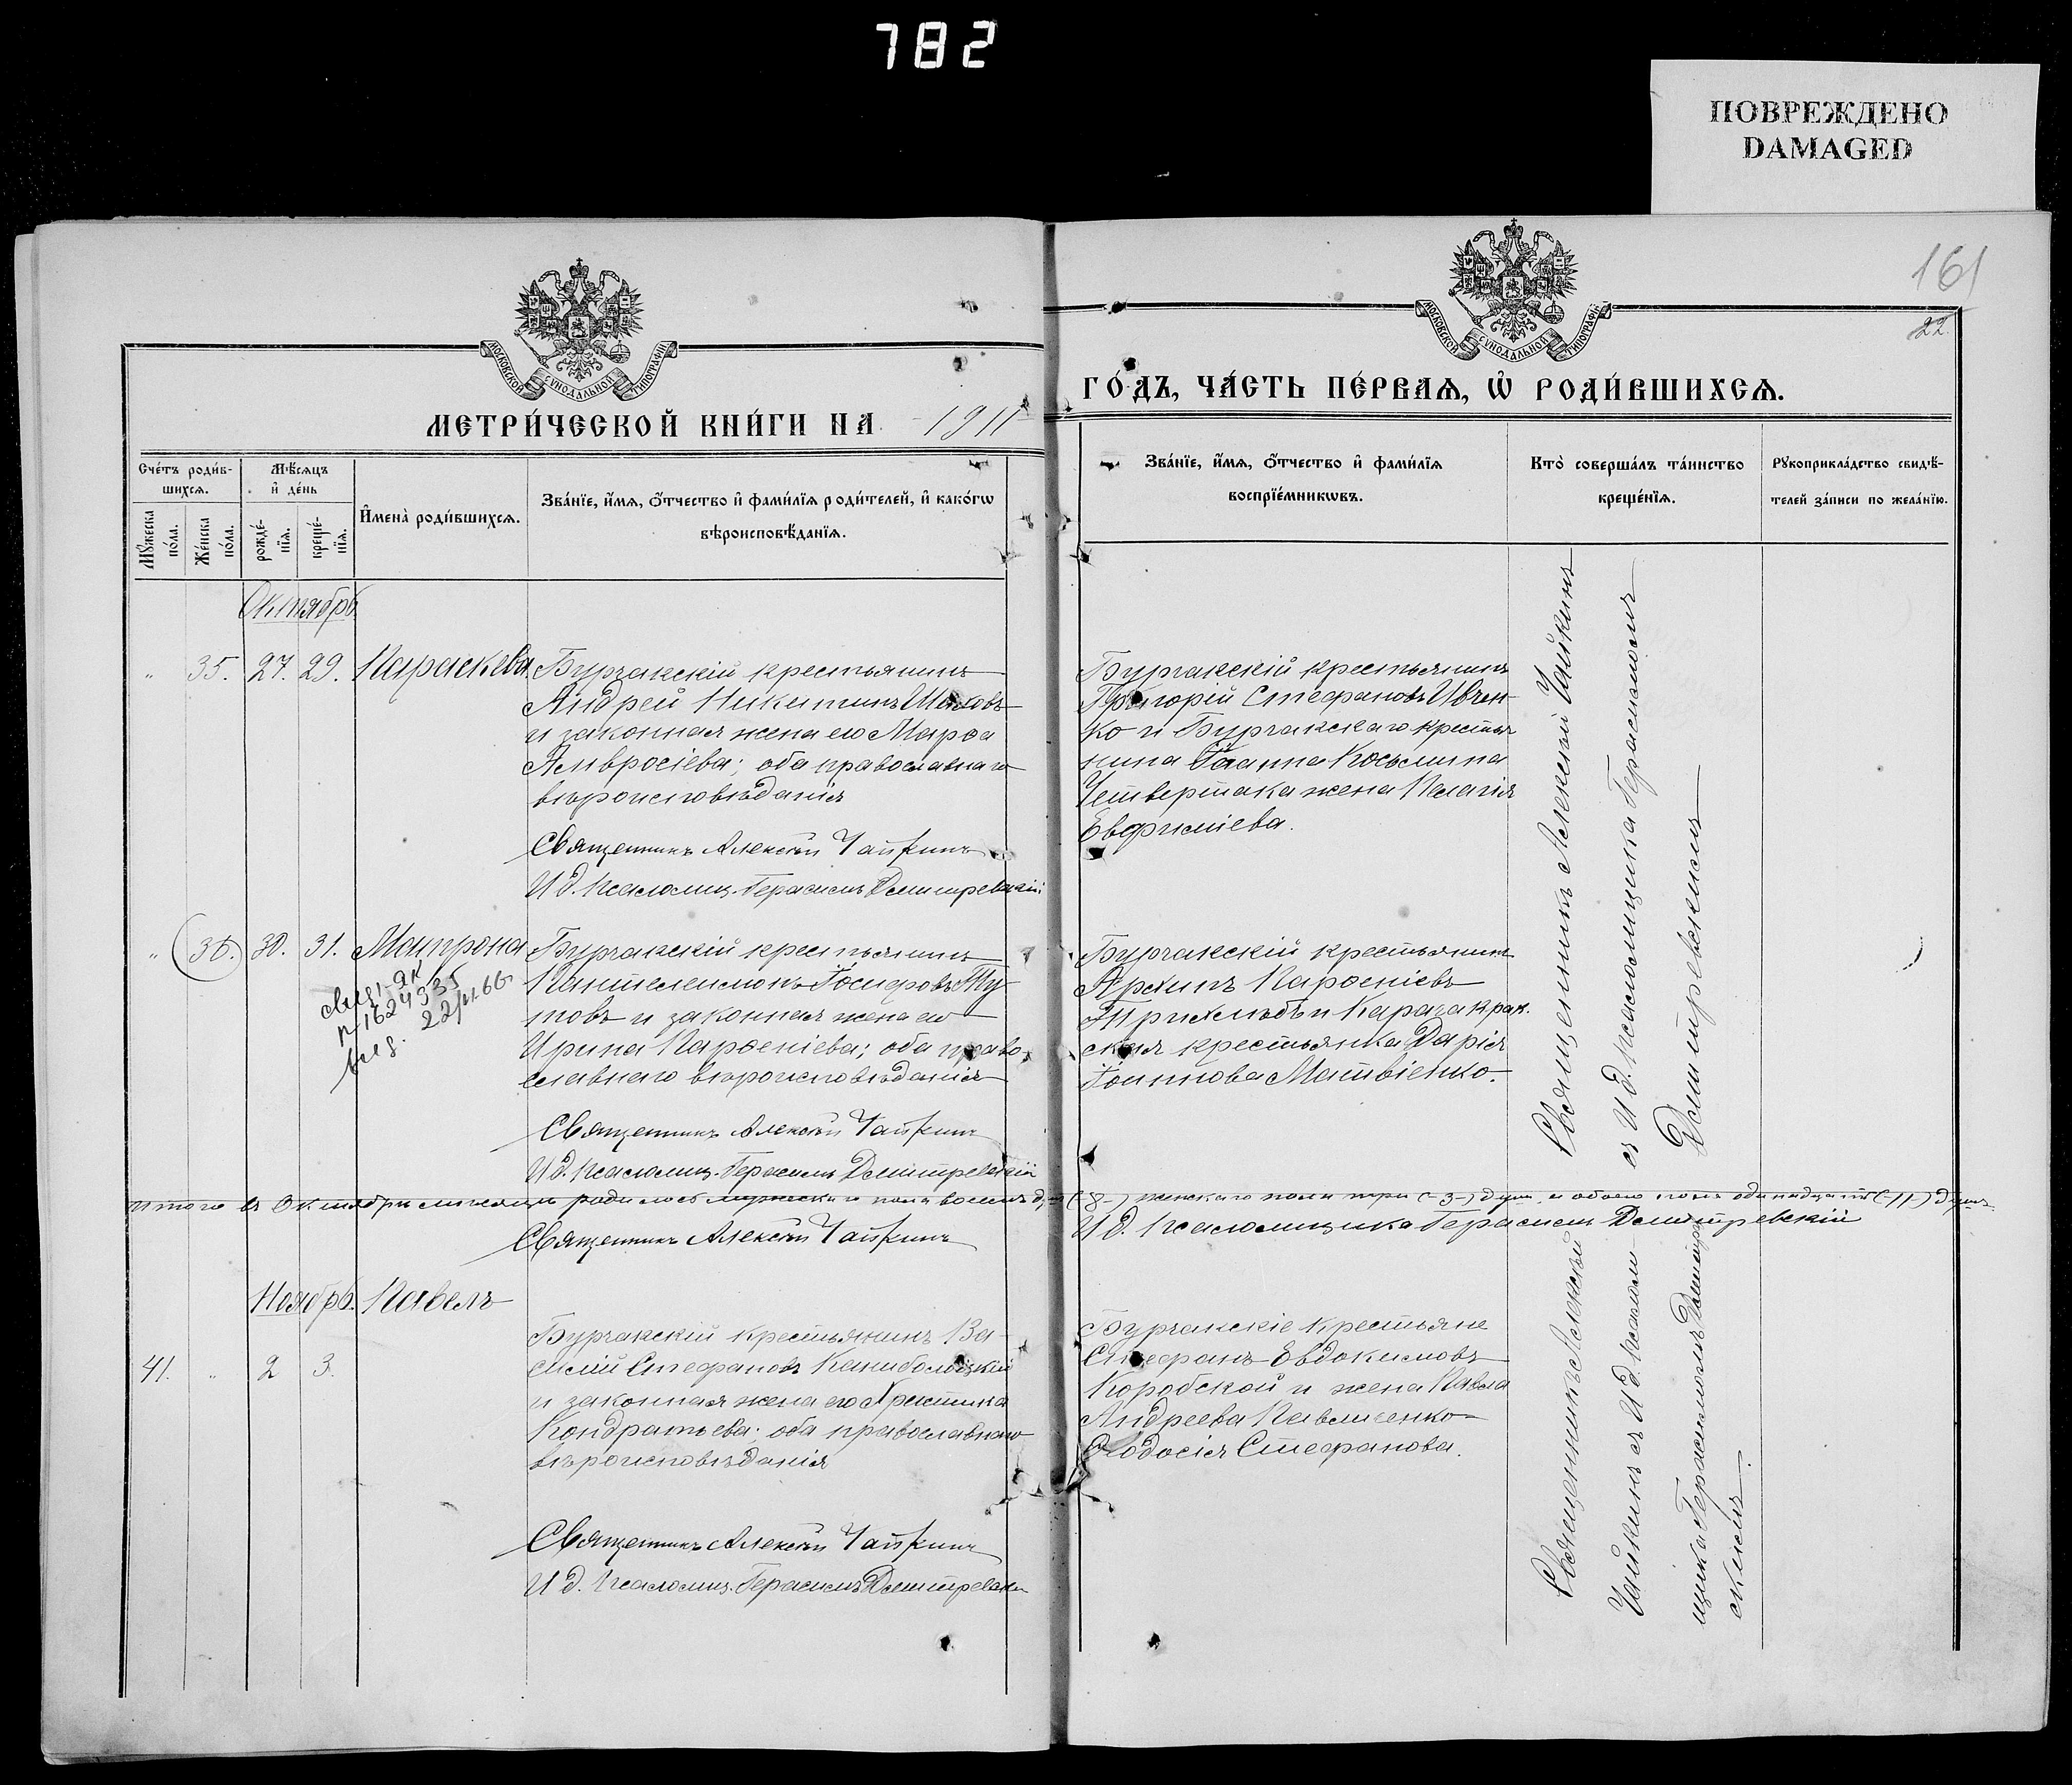 782
ПОВРЕЖДЕНО
DAMAGED
161
22.
МОСКОВСКОЙ СѴНОДАЛЬНОЙ ТИПОГРАФІИ
МОСКОВСКОЙ СѴНОДАЛЬНОЙ ТИПОГРАФІИ
МЕТРИ́ЧЕСКОЙ КНИ́ГИ НА 1911
ГО́ДЪ, ЧА́СТЬ ПЕ́РВАѦ, Ѡ҆ РОДИ́ВШИХСѦ.
Сче́тъ роди́в-
шихсѧ.
Мꙋжеска по́ла.
Же́нска по́ла.
Мѣ́сѧцъ
и҆ де́нь
рожде́-
нїѧ.
креще́-
нїѧ.
И҆мена̀ роди́вшихсѧ.
Зва́нїе, и҆́мѧ, ѻ҆́тчество и҆ фами́лїѧ роди́телей, и҆ како́гѡ
вѣроисповѣ́данїѧ.
Зва́нїе, и҆́мѧ, ѻ҆́тчество и҆ фами́лїѧ
воспрїе́мникѡвъ.
Кто̀ соверша́лъ та́инство
креще́нїѧ.
Рꙋкоприкла́дство свидѣ́-
телей за́писи по жела́нїю.
Октябрь
" 35. 27. 29. Параскева.
Бурчакскій крестьянинъ
Андрей Никитинъ
и законная жена его Марѳа
Амвросіева; оба православнаго
вѣроисповѣданія
Священникъ Алексѣй Чайкинъ
И д. псаломщ. Герасимъ Дмитревскій
Бурчакскій крестьянинъ
Григорій Стефановъ Ивчен-
ко и Бурчакскаго крестья
нина Іоанна Косьмина
Четвертака жена Пелагія
Евфиміева.
Священникъ Алексѣй Чайкинъ
съ И д. псаломщика Герасимомъ
Дмитревскимъ
" 36. 30. 31. Матрона
22/XI 66
Бурчакскій крестьянинъ
Пантелеимонъ Іосифовъ Ту-
товъ и законная жена его
Ирина Парѳеніева; оба право-
славнаго вѣроисповѣданія
Священникъ Алексѣй Чайкинъ
И д. псаломщ. Герасимъ Дмитревскій
Бурчакскій крестьянинъ
Архипъ Парѳеніевъ
и Карачакрак-
ская крестьянка Дарія
Іоаннова Матвіенко.
Итого въ Октябрѣ мѣсяцѣ родилось мужскаго пола восемь душ (-8-) женскаго пола три (-3-) душ. и обоего пола одинадцать (-11-) душъ.
Священникъ Алексѣй Чайкинъ
И д. псаломщика Герасимъ Дмитревскій
Ноябрь. Павелъ
41. " 2 3.
Бурчакскій крестьянинъ Ва-
силій Стефановъ
и законная жена его Христина
Кондратьева; оба православнаго
вѣроисповѣданія
Священникъ Алексѣй Чайкинъ
И д. псаломщ. Герасимъ Дмитревскій
Бурчакскіе крестьяне
Стефанъ Евдокимовъ
Коробской и жена Павла
Андреева Павличенко
Ѳеодосія Стефанова.
Священникъ Алексѣй
Чайкинъ съ И д. псалом
щика Герасимомъ Дмитрев
скимъ